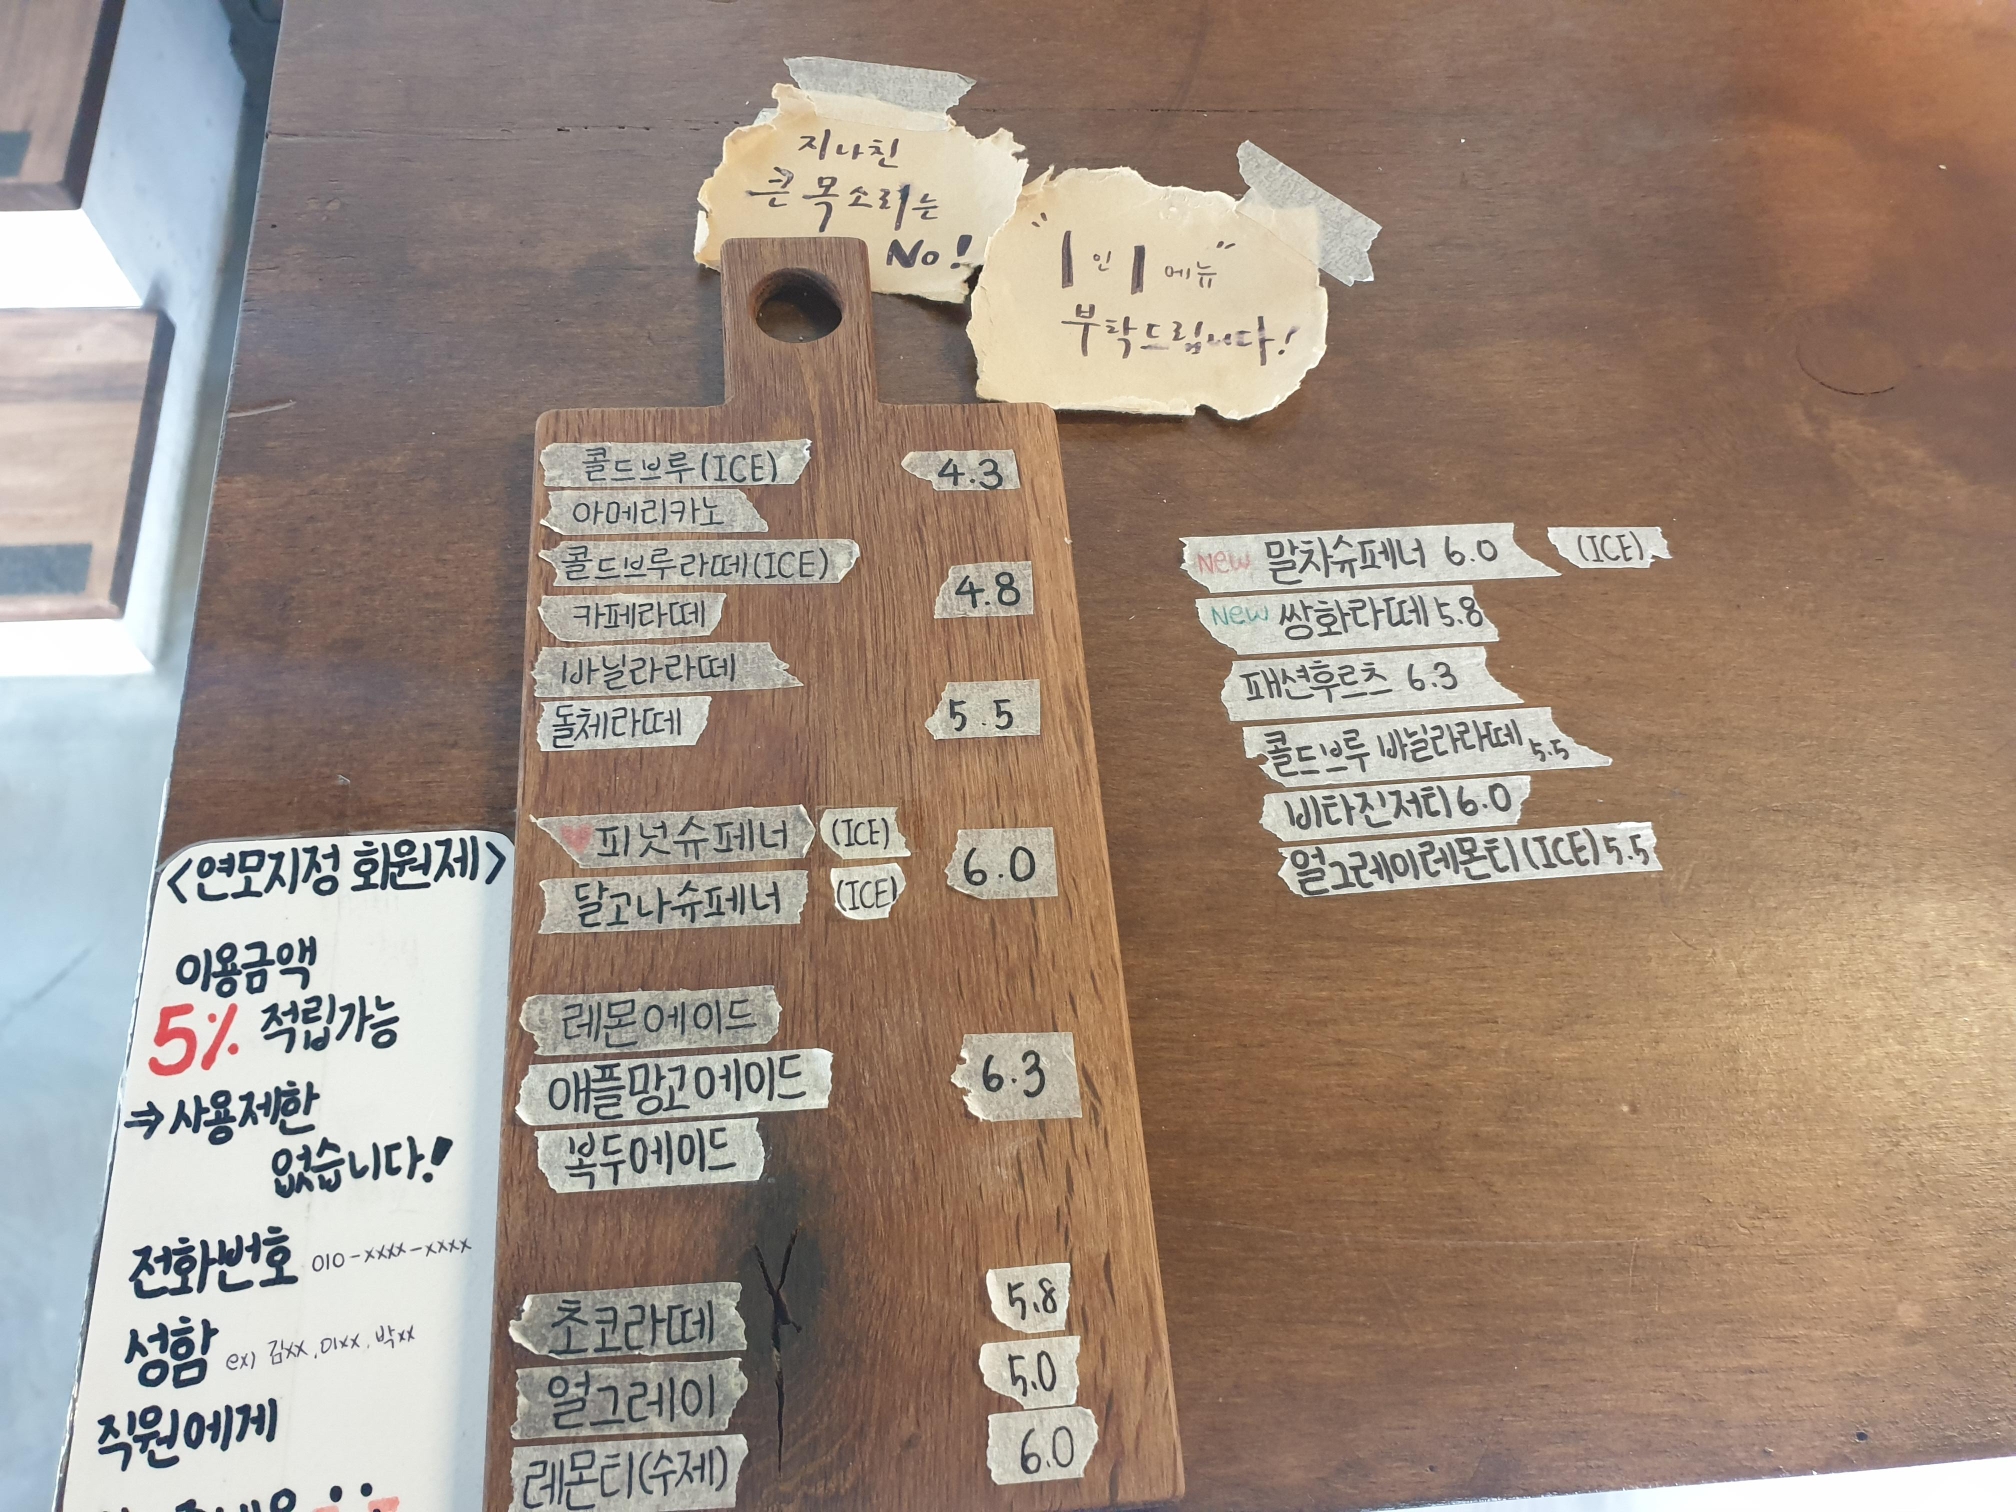 지나친
큰 목소리는
No!
"1인 1메뉴"
부탁드립니다!
콜드브루(ICE) 4.3
아메리카노
콜드브루라떼(ICE) 4.8
카페라떼
바닐라라떼
돌체라떼 5.5
피넛슈페너 (ICE) 6.0
달고나슈페너 (ICE)
레몬에이드
애플망고에이드 6.3
복두에이드
초코라떼 5.8
얼그레이 5.0
레몬티(수제) 6.0
New 말차슈페너 6.0 (ICE)
New 쌍화라떼 5.8
패션후르츠 6.3
콜드브루 바닐라라떼 5.5
비타진저티 6.0
얼그레이레몬티(ICE) 5.5
<연모지정 회원제>
이용금액
5% 적립가능
⇒ 사용제한
없습니다!
전화번호 010-xxxx-xxxx
성함 ex) 김xx, 이xx, 박xx
직원에게